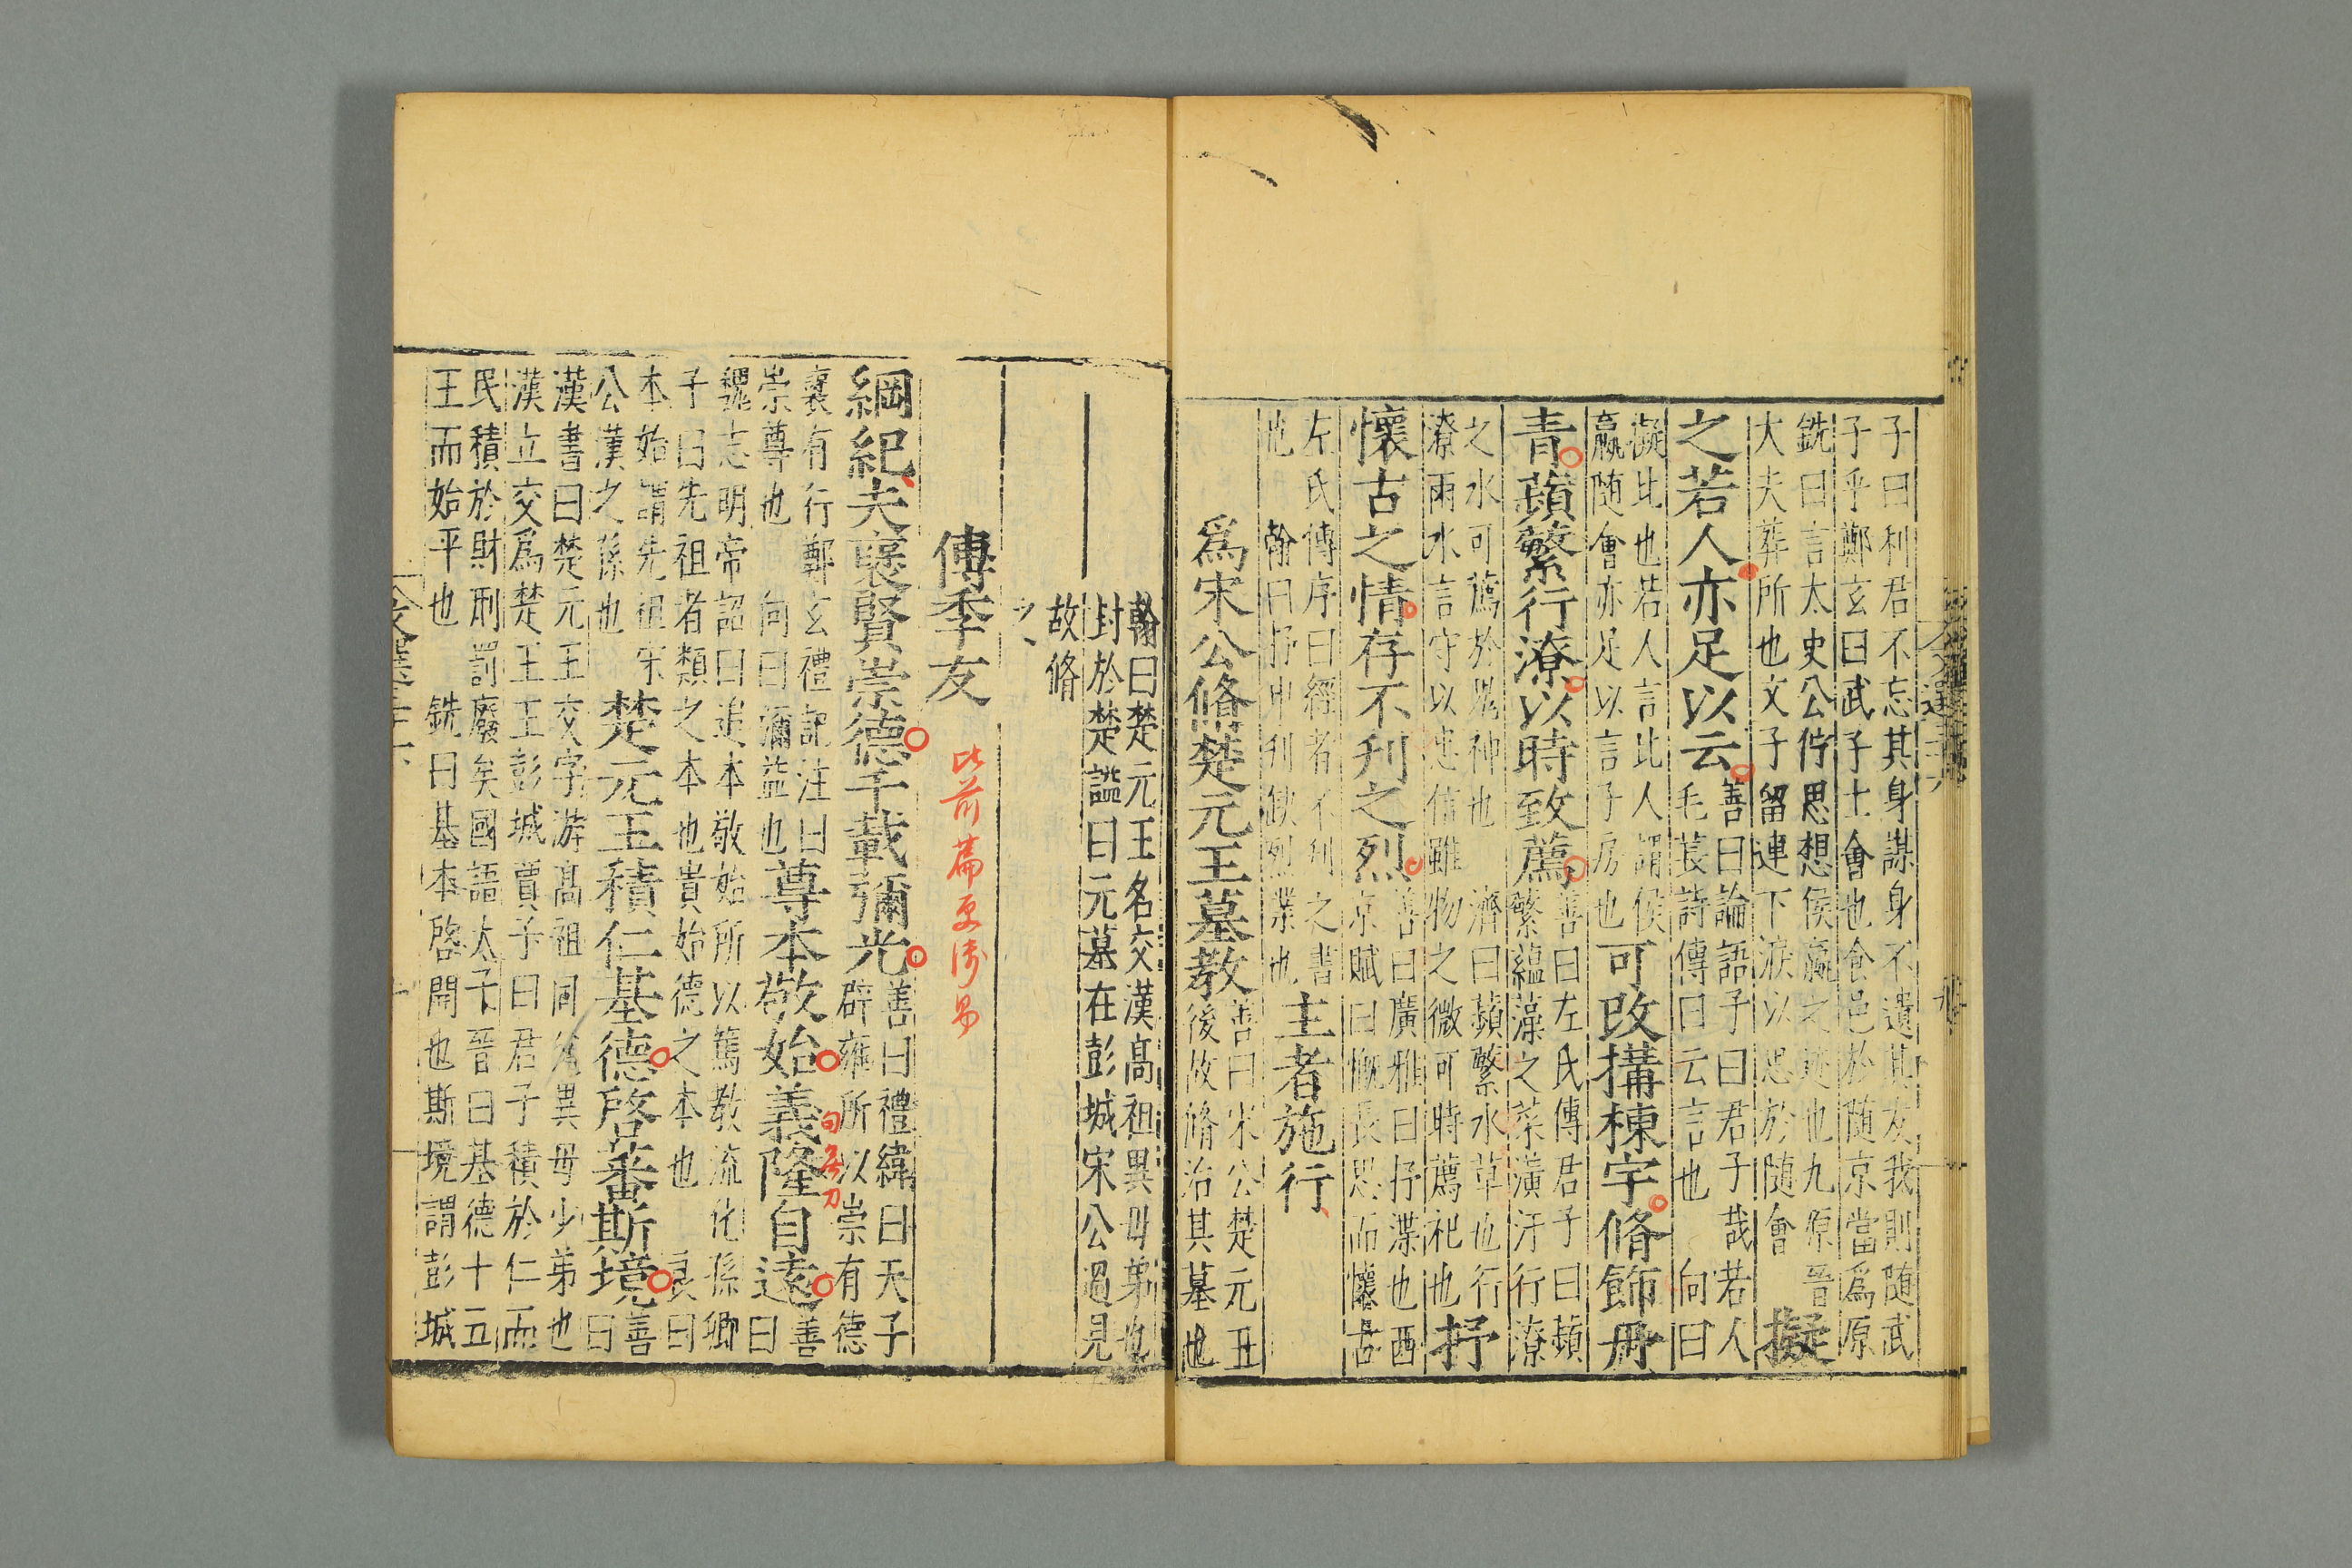 子曰利君不忘其身謀身不遺其友我則随武
子乎鄭玄曰武子士會也食邑於随京當為原
銑曰言太史公佇思想侯嬴之迹也九原晉
大夫葬所也文子留連下淚以思於随會
擬
之若人亦足以云
善曰論語子曰君子哉若人
毛萇詩傳曰云言也 向曰
擬比也若人言比人謂侯
嬴随會亦足以言子房也
可改搆棟宇脩飾丹
青蘋蘩行潦以時致薦
善曰左氏傳君子曰蘋
蘩蕰藻之菜潢汙行潦
之水可薦於鬼神也 濟曰蘋蘩水草也行
潦雨水言守以忠信雖物之微可時薦祀也
抒
懷古之情存不刊之烈
善曰廣雅曰抒渫也西
京賦曰慨長思而懷古
左氏傳序曰經者不刊之書
也 翰曰抒申刊缺烈業也
主者施行
爲宋公脩楚元王墓教
善曰宋公楚元王
後故脩治其墓也
翰曰楚元王名交漢高祖異毋弟也
封於楚謚曰元墓在彭城宋公過見
故脩
之
傅季友
此前篇更傷易
綱紀夫褒賢崇德千載彌光
善曰禮緯曰天子
辟雍所以崇有德
褒有行鄭玄禮記注曰
崇尊也 向曰彌益也
尊本敬始義隆自遠
句乏力
善
曰
魏志明帝詔曰追本敬始所以篤敎流化孫卿
子曰先祖者類之本也貴始德之本也 良曰
本始謂先祖宋
公漢之孫也
楚元王積仁基德啓蕃斯境
善
曰
漢書曰楚元王交字游高祖同父異毋少弟也
漢立交爲楚王王彭城賈子曰君子積於仁而
民積於財刑罰廢矣國語太子晉曰基德十五
王而始平也 銑曰基本啓開也斯境謂彭城